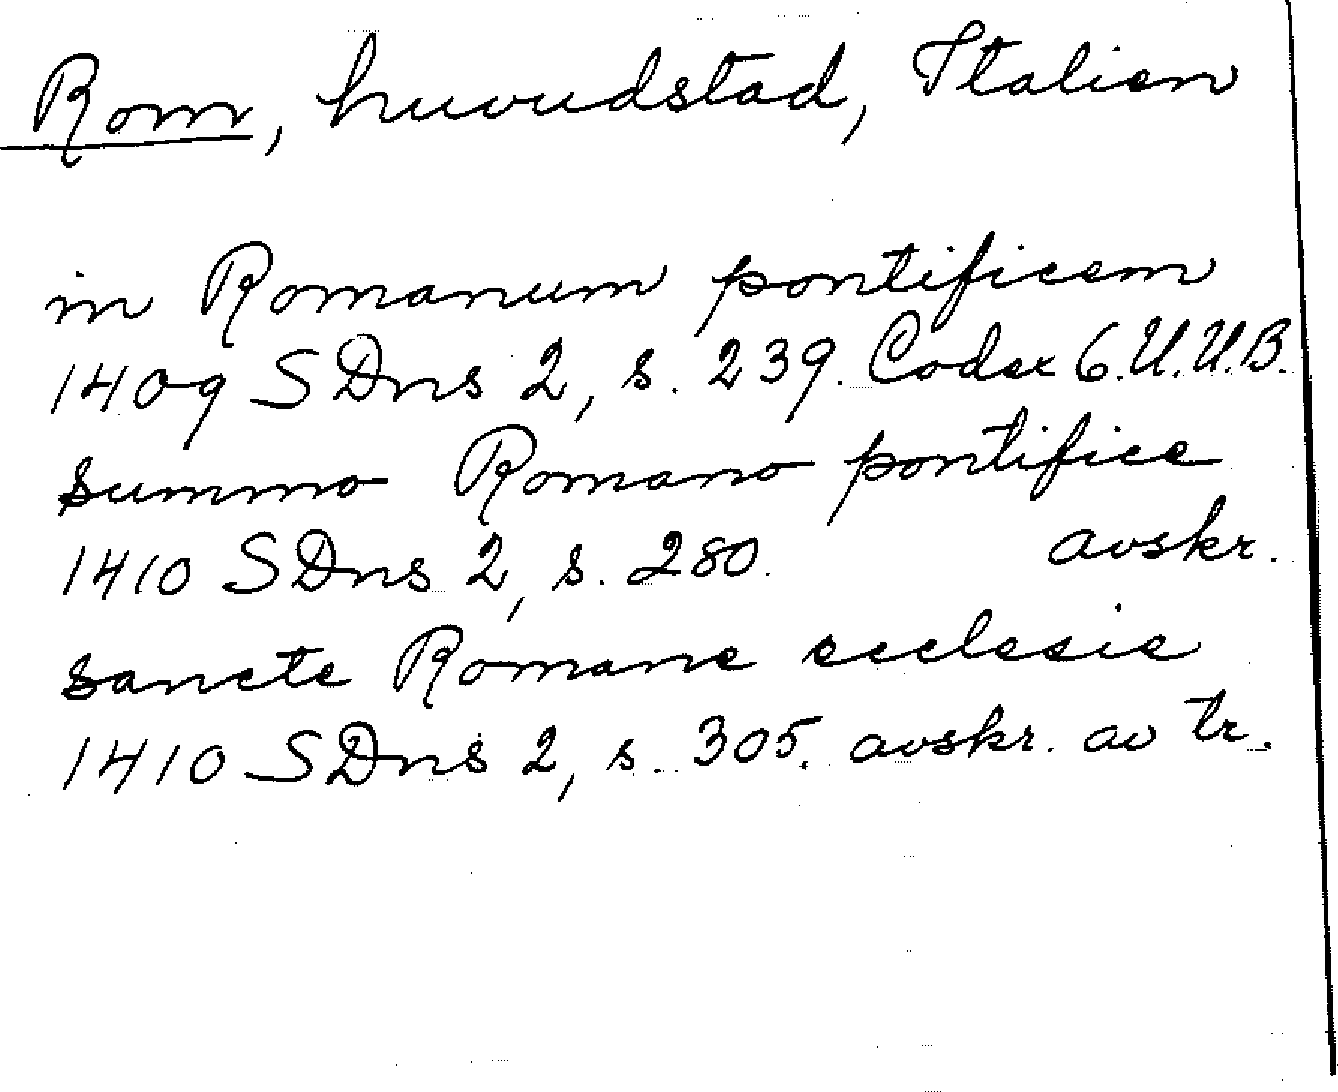 Rom, huvudstad, Italien
in Romanum pontificem
1409 SDns 2, s. 239. Codex 6. U.U.B.
summo Romano pontifice
1410 SDns 2, s. 280. avskr.
sancte Romane ecclesie
1410 SDns 2, s. 305. avskr. av tr.